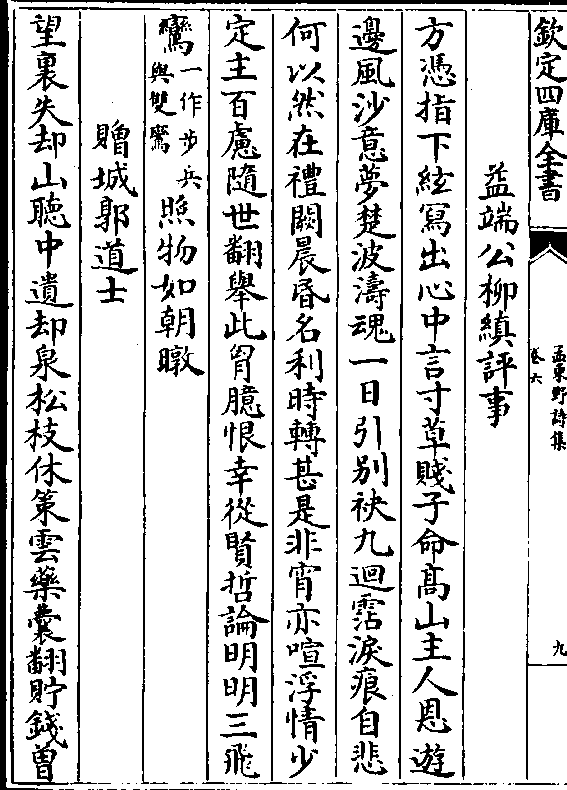 欽定四庫全書
孟東野詩集
卷六
九
益端公柳縝評事
方憑指下絃寫出心中言寸草賤子命高山主人恩遊
邊風沙意夢楚波濤魂一日引别袂九迴霑淚痕自悲
何以然在禮闕晨昏名利時轉甚是非宵亦喧浮情少
定主百慮隨世翻舉此胷臆恨幸從賢哲論明明三飛
鸞一作步兵與雙鸞照物如朝暾
贈城郭道士
望裏失却山聽中遺却泉松枝休策雲藥囊翻貯錢曽